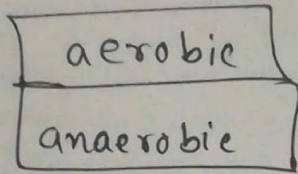 aerobic
anaerobic